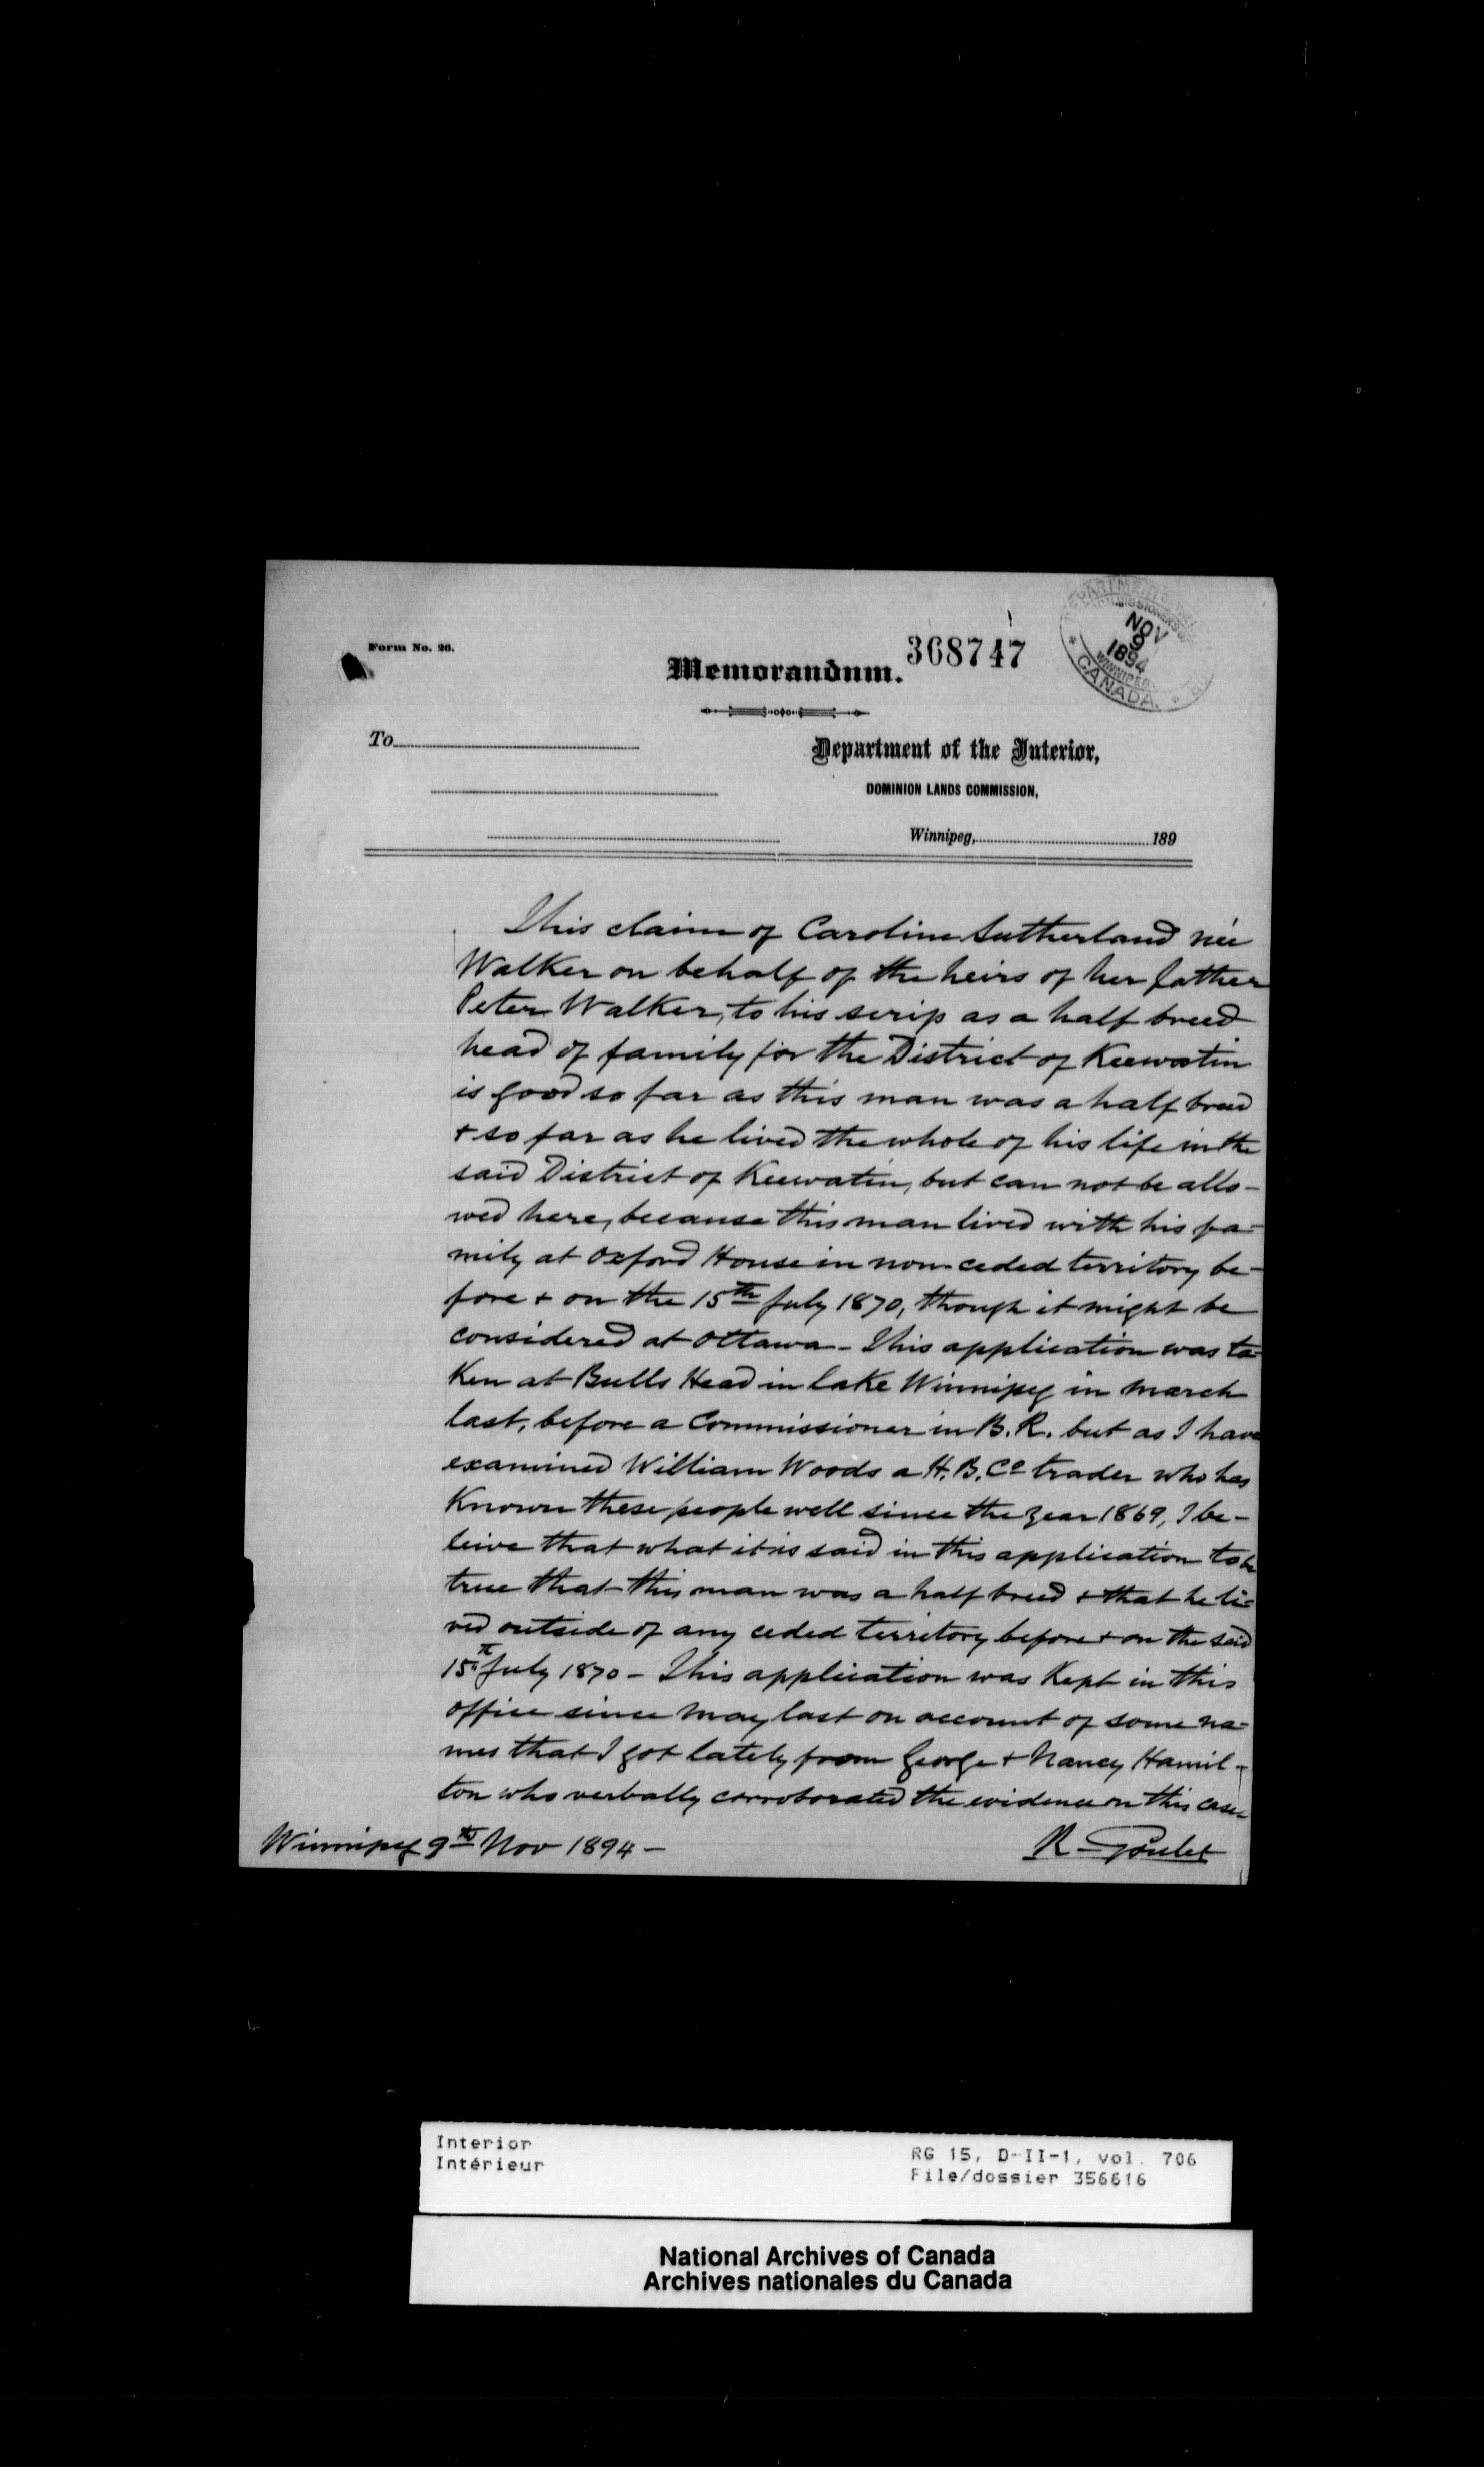 Form No. 26.
Memorandum.
368747
DEPARTMENT
COMMISSIONERS
NOV
9
1894
WINNIPEG
CANADA.
To
Department of the Interior,
DOMINION LANDS COMMISSION,
Winnipeg, 189
This claim of Caroline Sutherland née
Walker on behalf of the heirs of her father
Peter Walker, to his scrip as a half breed
head of family for the District of Keewatin
is good so far as this man was a half breed
+ so far as he lived the whole of his life in the
said District of Keewatin, but can not be allo-
wed here, because this man lived with his fa-
mily at Oxford House in non-ceded territory be-
fore + on the 15th July 1870, though it might be
considered at Ottawa - This application was ta-
ken at Bulls Head in lake Winnipeg in march
last, before a Commissioner in B.R. but as I have
examined William Woods a H.B.Co trader who has
Known these people well since the year 1869, I be-
leive that what it is said in this application to be
true that this man was a half breed + that he li-
ved outside of any ceded territory before + on the said
15th July 1870 - This application was Kept in this
office since may last on account of some na-
mes that I got lately from George + Nancy Hamil-
ton who verbally corroborated the evidence on this case
Winnipeg 9th Nov 1894 -
R - Goulet
Interior
Intérieur
RG 15, D-II-1, vol. 706
File/dossier 356616
National Archives of Canada
Archives nationales du Canada